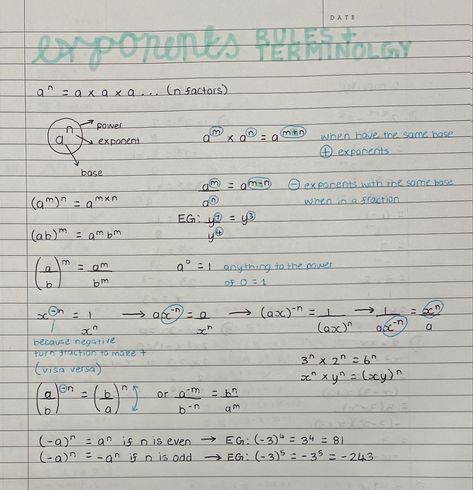 DATE
exponents RULES + TERMINOLGY
aⁿ = a x a x a ... (n factors)
aⁿ → power
→ exponent
→ base
a^m x a^n = a^(m+n) when have the same base
⊕ exponents
a^m/a^n = a^(m-n) ⊖ exponents with the same base
when in a fraction
EG: y^7/y^4 = y^3
(a^m)^n = a^(m x n)
(ab)^m = a^m b^m
(a/b)^m = a^m/b^m
a^0 = 1 anything to the power
of 0 = 1
x^(-n) = 1/x^n → ax^(-n) = a/x^n → (ax)^(-n) = 1/(ax)^n → 1/ax^(-n) = x^n/a
because negative
turn fraction to make +
(visa versa)
3^n x 2^n = 6^n
x^n x y^n = (xy)^n
(a/b)^(-n) = (b/a)^n or a^(-m)/b^(-n) = b^n/a^m
(-a)^n = a^n if n is even → EG: (-3)^4 = 3^4 = 81
(-a)^n = -a^n if n is odd → EG: (-3)^5 = -3^5 = -243